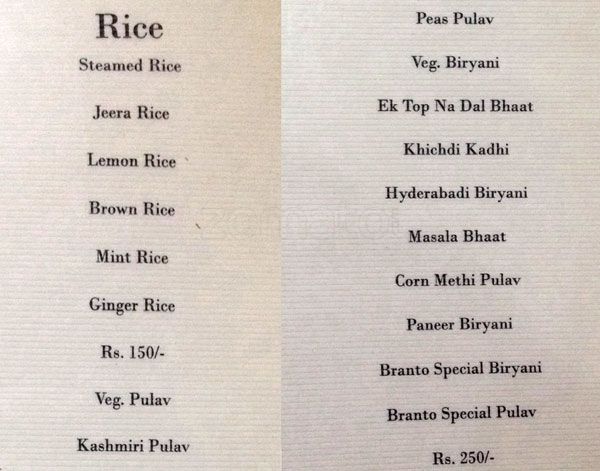 Rice
Steamed Rice
Jeera Rice
Lemon Rice
Brown Rice
Mint Rice
Ginger Rice
Rs. 150/-
Veg. Pulav
Kashmiri Pulav
Peas Pulav
Veg. Biryani
Ek Top Na Dal Bhaat
Khichdi Kadhi
Hyderabadi Biryani
Masala Bhaat
Corn Methi Pulav
Paneer Biryani
Branto Special Biryani
Branto Special Pulav
Rs. 250/-